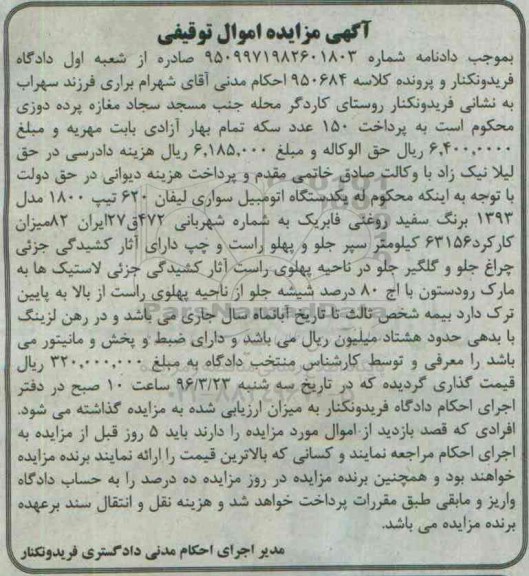 آگهی مزایده اموال توقیفی
بموجب دادنامه شماره ۹۵۰۹۹۷۱۹۸۲۶۰۱۸۰۳ صادره از شعبه اول دادگاه
فریدونکنار و پرونده کلاسه ۹۵۰۶۸۴ احکام مدنی آقای شهرام براری فرزند سهراب
به نشانی فریدونکنار روستای کاردگر محله جنب مسجد سجاد مغازه پرده دوزی
محکوم است به پرداخت ۱۵۰ عدد سکه تمام بهار آزادی بابت مهریه و مبلغ
۶,۴۰۰,۰۰۰۰ ریال حق الوکاله و مبلغ ۶,۱۸۵,۰۰۰ ریال هزینه دادرسی در حق
لیلا نیک زاد با وکالت صادق خاتمی مقدم و پرداخت هزینه دیوانی در حق دولت
با توجه به اینکه محکوم له یکدستگاه اتومبیل سواری لیفان ۶۲۰ تیپ ۱۸۰۰ مدل
۱۳۹۳ برنگ سفید روغنی فابریک به شماره شهربانی ۴۷۲ق۲۷ایران ۸۲میزان
کارکرد۶۳۱۵۶ کیلومتر سپر جلو و پهلو راست و چپ دارای آثار کشیدگی جزئی
چراغ جلو و گلگیر جلو در ناحیه پهلوی راست آثار کشیدگی جزئی لاستیک ها به
مارک رودستون با اج ۸۰ درصد شیشه جلو از ناحیه پهلوی راست از بالا به پایین
ترک دارد بیمه شخص ثالث تا تاریخ آبانماه سال جاری می باشد و در رهن لزینگ
با بدهی حدود هشتاد میلیون ریال می باشد و دارای ضبط و پخش و مانیتور می
باشد را معرفی و توسط کارشناس منتخب دادگاه به مبلغ ۳۲۰,۰۰۰,۰۰۰ ریال
قیمت گذاری گردیده که در تاریخ سه شنبه ۹۶/۳/۲۳ ساعت ۱۰ صبح در دفتر
اجرای احکام دادگاه فریدونکنار به میزان ارزیابی شده به مزایده گذاشته می شود.
افرادی که قصد بازدید از اموال مورد مزایده را دارند باید ۵ روز قبل از مزایده به
اجرای احکام مراجعه نمایند و کسانی که بالاترین قیمت را ارائه نمایند برنده مزایده
خواهند بود و همچنین برنده مزایده در روز مزایده ده درصد را به حساب دادگاه
واریز و مابقی طبق مقررات پرداخت خواهد شد و هزینه نقل و انتقال سند برعهده
برنده مزایده می باشد.
مدیر اجرای احکام مدنی دادگستری فریدونکنار